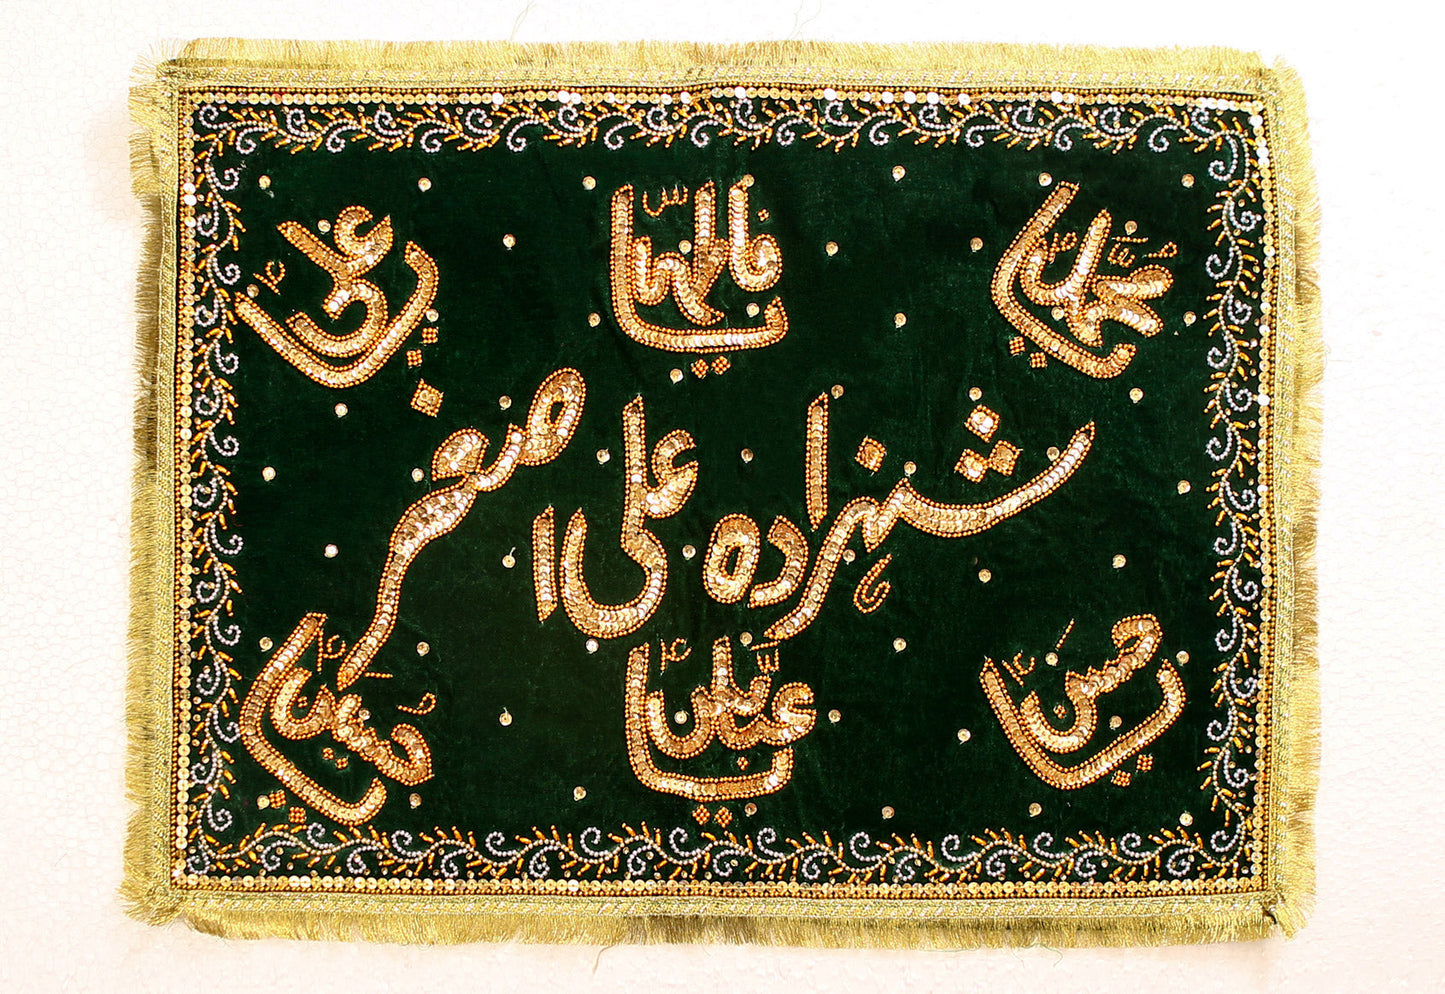 یا محمد
یا فاطمہ
یا علی
شہزادہ علی اصغر
یا حسن
یا عباس
یا حسین